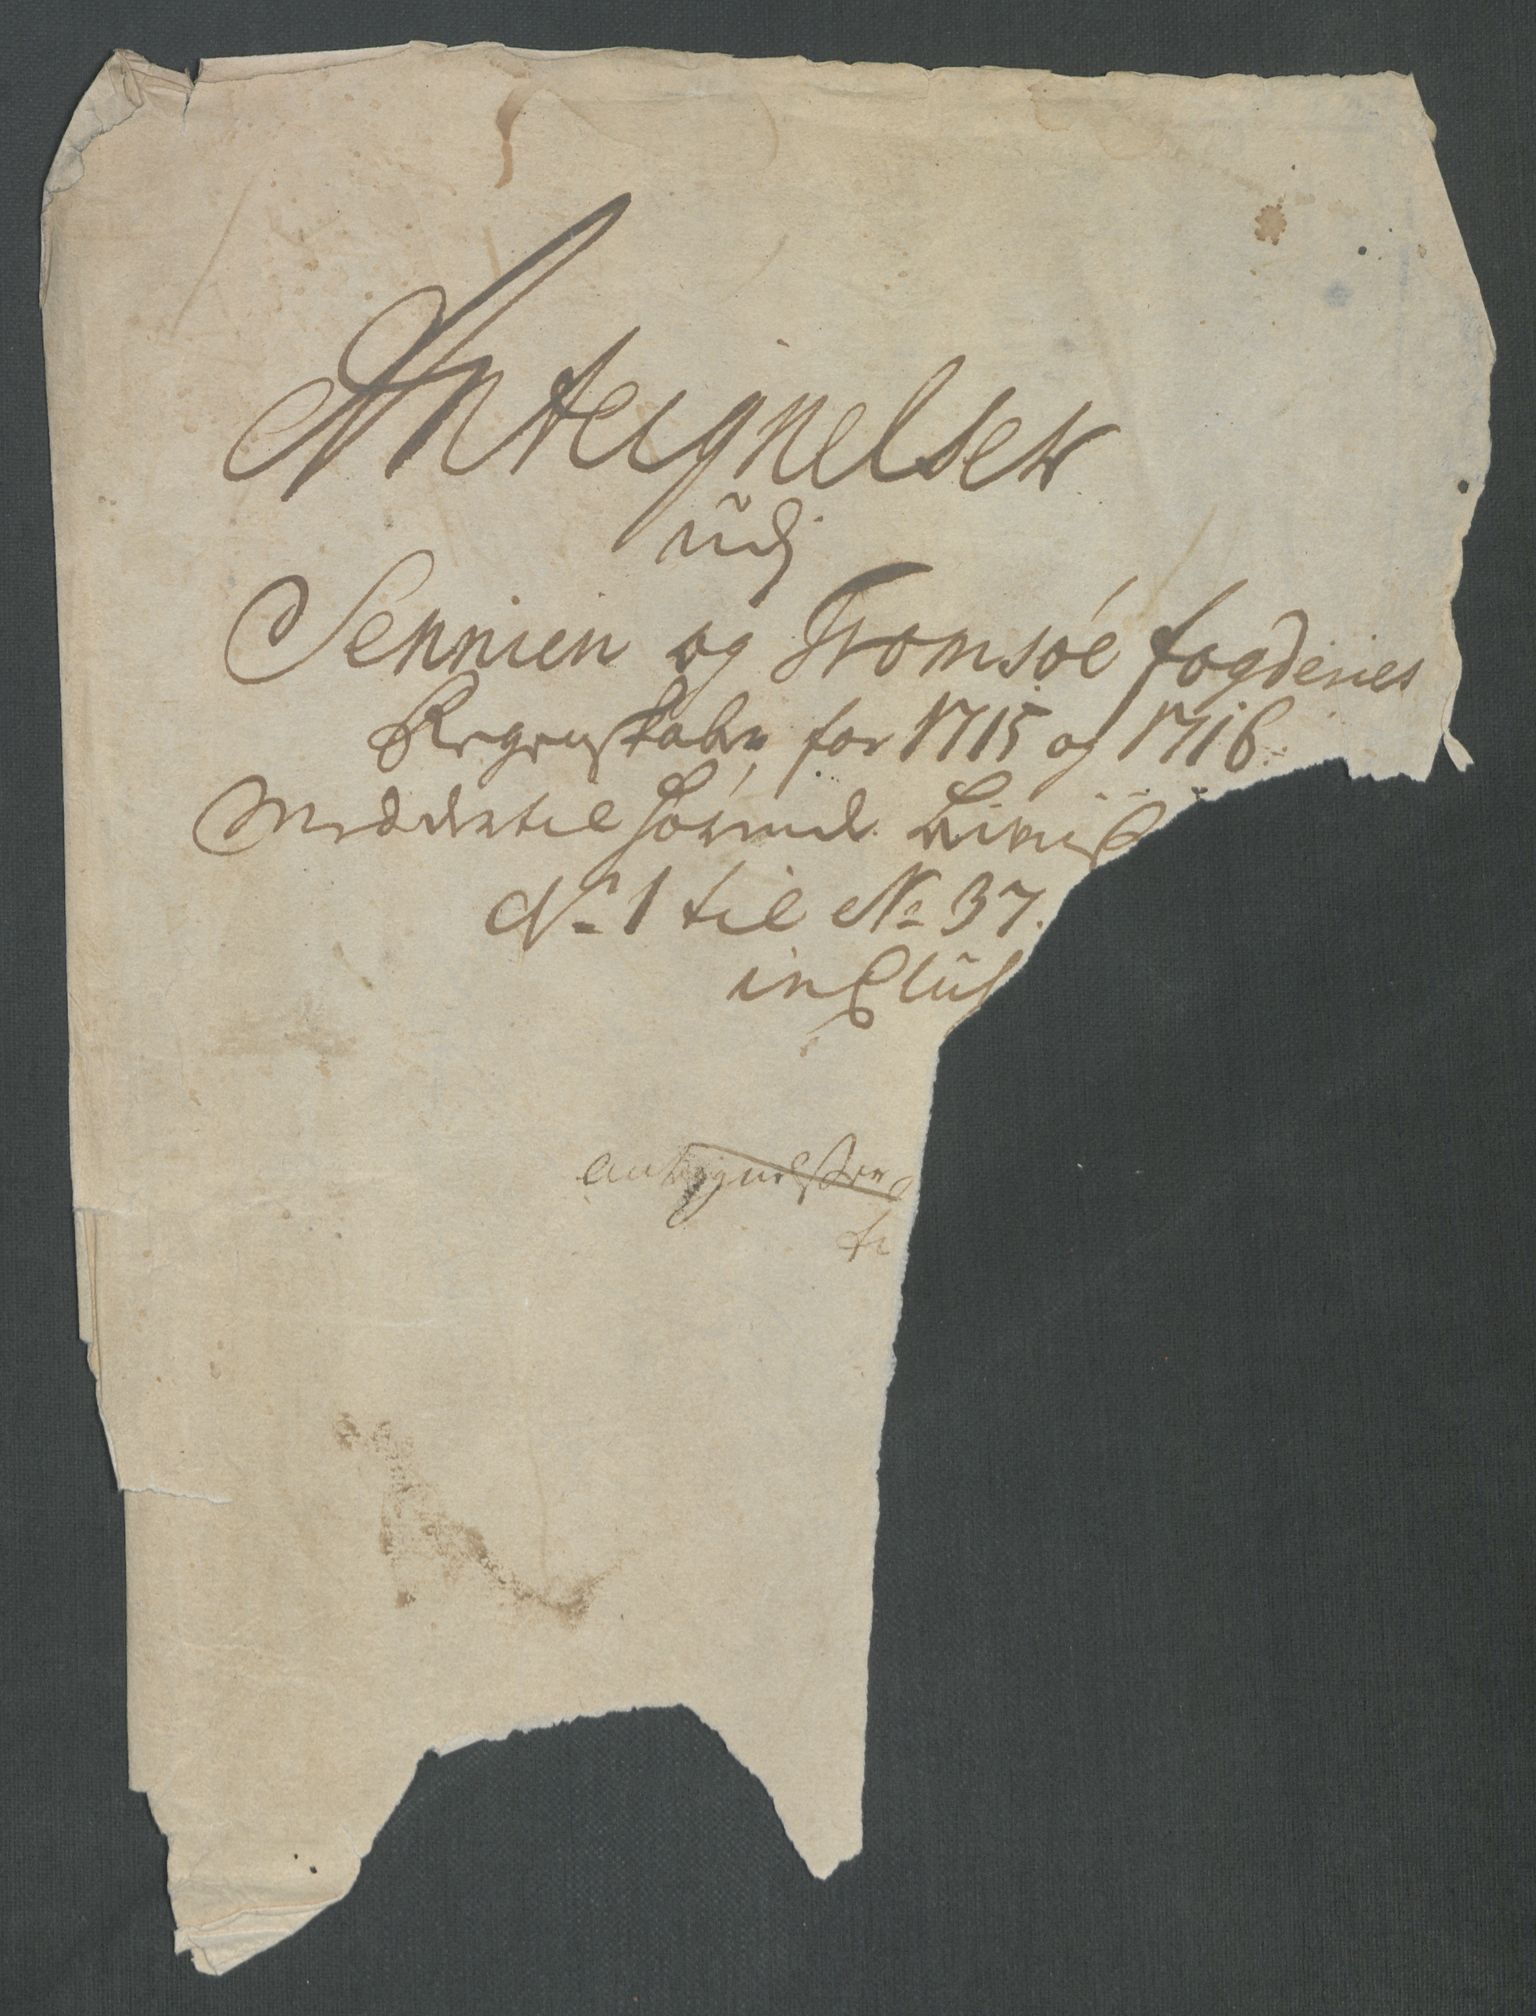 Anteignelser
udj
Sennien og Tromsøe fogderies
Regenskaber for 1715 og 1716
Med dertil hørende
No 1 til No 37.
inclus
anteignelser
ti